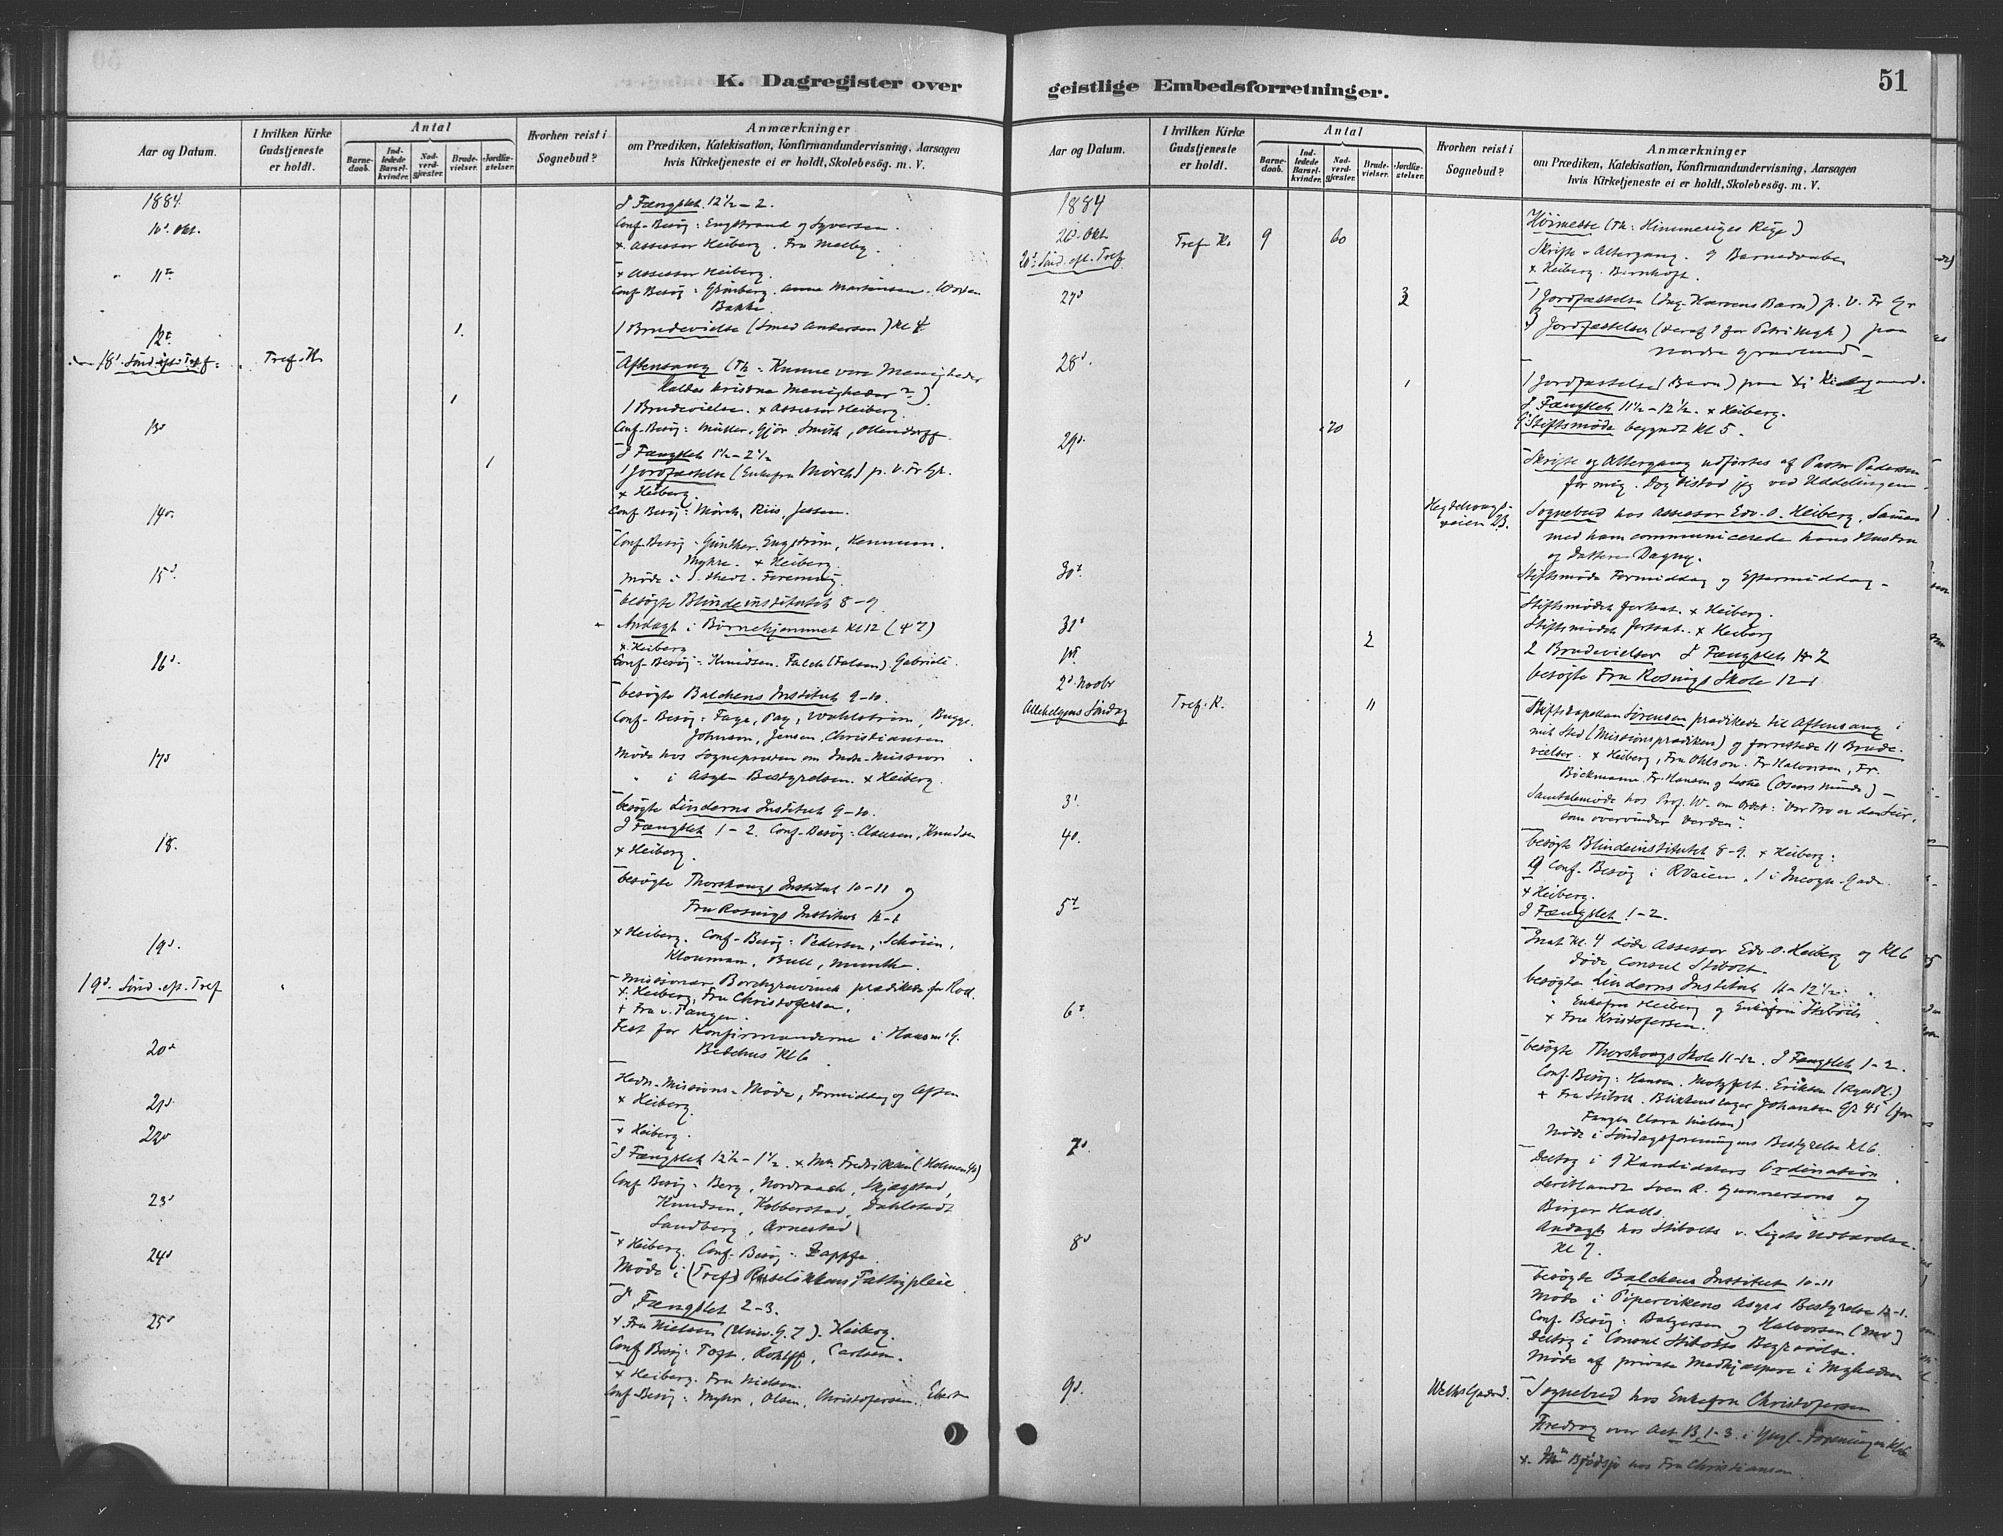 K. Dagregister over
Aar og Datum.
I hvilken Kirke Gudstjeneste er holdt.
Antal
Barnedaab.
Indledede Barselkvinder.
Nadverdgjæster.
Brudevielser.
Jordfæstelser.
Hvorhen reist i Sognebud?
Anmærkninger
om Prædiken, Katekisation, Konfirmandundervisning, Aarsagen
hvis Kirketjeneste ei er holdt, Skolebesøg. m. V.
1884.
I Fængslet 12½-2.
10d. Okt.
Conf-Besøg: Engstrand og Syversen.
+ Assessor Heiberg. Fru
11te
+ Assessor Heiberg.
Conf Besøg: Grønberg. Anna Martinsen.
Bakke.
12t
1.
1 Brudevielse (Smed Andersen) Kl 4.
18d. Sønd. eft. Tref.
Tref. K.
Aftensang (Th: Kunne vore Menigheder
kaldes kristne Menigheder?)
1
1 Brudevielse. + Assessor Heiberg.
13d
Conf-Besøg: Müller, Gjør, Smith, Ottendorff.
I Fængslet 1½-2½
1
1 Jordfæstelse (Enkefru Mørch) p. V. Fr Gr.
+ Heiberg.
14d.
Conf Besøg: Mørch, Riis, Jessen.
Conf-Besøg: Günther. Engstrøm,
Myhre. + Heiberg.
15d.
Møde i Forening
besøgte Blindeinstitutet 8-9.
Andagt i Børnehjemmet Kl 12 (47)
+ Heiberg
16d.
Conf-Besøg: Knudsen. Falch (Falsen). Gabriels.
besøgte Balchens Institut 9-10.
Conf-Besøg: Faye, Pay, Wahlstrøm, Bugge.
Johnson, Jensen, Christiansen
17d
Møde hos Sognepresten om Indre-Mission
" i Asyl-Bestyrelsen. + Heiberg.
besøgte Linderns Institut 9-10.
I Fængslet 1-2. Conf-Besøg: Clausen, Knudsen
18.
+ Heiberg.
besøgte Thorshaugs Institut 10-11 og
Fru Rosnings Institut 12-1
19d.
+ Heiberg. Conf-Besøg: Pedersen, Schøien,
Klouman, Bull, Munthe.
19d. Sønd. eft. Tref
"
Missionær Borchgrevinck prædikede for
+ Heiberg, Fru Christofersen.
+ Fru v. Tangen.
Fest for Konfirmanderne i Hausm. G.
20de
Bedehus Kl 6
Missions-Møde, Formiddag og Aften
21d.
+ Heiberg.
22d
+ Heiberg.
I Fængslet 12½-1½. + Fredriksen (Holmen 40)
Conf Besøg: Berg, Nordraach, Skjægstad,
23d
Knudsen, Kobberstad, Dahlstedt
Sandberg, Arnestad
+ Heiberg. Conf-Besøg: Zappfe.
24d
Møde i (Tref) Ruseløkkens Fattigpleie
I Fængslet 2-3.
25d
+ Fru Nielsen (Univ. G. 7). Heiberg.
Conf Besøg: Toft, Rohlff, Carlsen.
+ Heiberg. Fru Nielsen.
Conf-Besøg: Myhre, Olsen, Christofersen.
geistlige Embedsforretninger.
51
Aar og Datum.
I hvilken Kirke Gudstjeneste er holdt.
Antal
Barnedaab.
Indledede Barselkvinder.
Nadverdgjæster.
Brudevielser.
Jordfæstelser.
Hvorhen reist i Sognebud?
Anmærkninger
om Prædiken, Katekisation, Konfirmandundervisning, Aarsagen
hvis Kirketjeneste ei er holdt, Skolebesøg. m. V.
1884
26d. Okt
Tref-K.
9
60
Høimesse (Th: Himmeriges Rige)
20d. Sønd. eft. Tref
Skrifte- Altergang. 9 Barnedaaber
+ Heiberg. Bernhoft.
27d
1 Jordfæstelse (Ing. Barn) p. V. Fr Gr
3 Jordfæstelser paa
nordre Gravlund -
28d.
1
1 Jordfæstelse (Barn) paa
I Fængslet 11½-12½. + Heiberg.
70
Stiftsmøde begyndt Kl 5.
29d.
Skrifte og Altergang udførtes af Pastor Pedersen
for mig. Dog bistod jeg ved Uddelingen.
Hegdehaugsveien 23.
Sognebud hos Assessor Edv. O. Heiberg. Sammen
med ham communicerede hans Hustru
og Datteren Dagny.
30t
Stiftsmøde Formiddag og Eftermiddag -
Stiftsmødet fortsat. + Heiberg.
31t
Stiftsmødet fortsat. + Heiberg
1ste
2
2 Brudevielser I Fængslet 1-2
2d. Novbr
besøgte Fru Rosnings Skole 12-1
Allehelgens Søndag
Tref. K.
11
Stiftskapellan Sørensen prædikede til Aftensang i
mit Sted (Missionsprædiken) og forrettede 11 Brudevielser.
+ Heiberg, Fru Ohlson. Fr Halvorsen, Fr.
Böckmann. Fr. Hansen og Leske (Oscars Minde) -
3t
Samtalemøde hos Prof. W- om Ordet: "Vor Tro er den Seir,
som overvinder Verden".
4d.
besøgte Blindeinstitutet 8-9. + Heiberg.
Conf-Besøg i 1 i Incogn-Gade
+ Heiberg.
5t
I Fængslet 1-2.
Inat Kl. 4 døde Assessor Edv. O. Heiberg og Kl 6
døde Consul Stibolt.
besøgte Linderns Institut 11-12½
" Enkefru Heiberg og Enkefru Stibolt
6t
+ Fru Kristofersen.
besøgte Thorshaugs Skole 11-12. I Fængslet 1-2.
Conf-Besøg: Hansen. Motzfelt. Eriksen
+ Fru Stibolt. Blikkenslager Johansen
Fangen Clara Nielsen)
7d
Møde i Søndagsforeningens Bestyrelse Kl 6.
Deltog i 9 Kandidaters Ordination
deriblandt Sven R. Gunnersons og
Birger Halls.
Andagt hos Stibolts v. Ligets Udbærelse.
8d
Kl 7.
besøgte Balchens Institut 10-11
Møde i Pipervikens Asyls Bestyrelse 12-1.
Conf. Besøg: Balzersen og Halvorsen
Deltog i Consul Stibolts Begravelse.
Møde af private Medhjælpere i Menigheden
9d.
Sognebud hos Enkefru Christofersen
Foredrag over Act. 13, 1-3. i Yngl-Foreningen Kl 6.
+ hos Fru Christiansen.